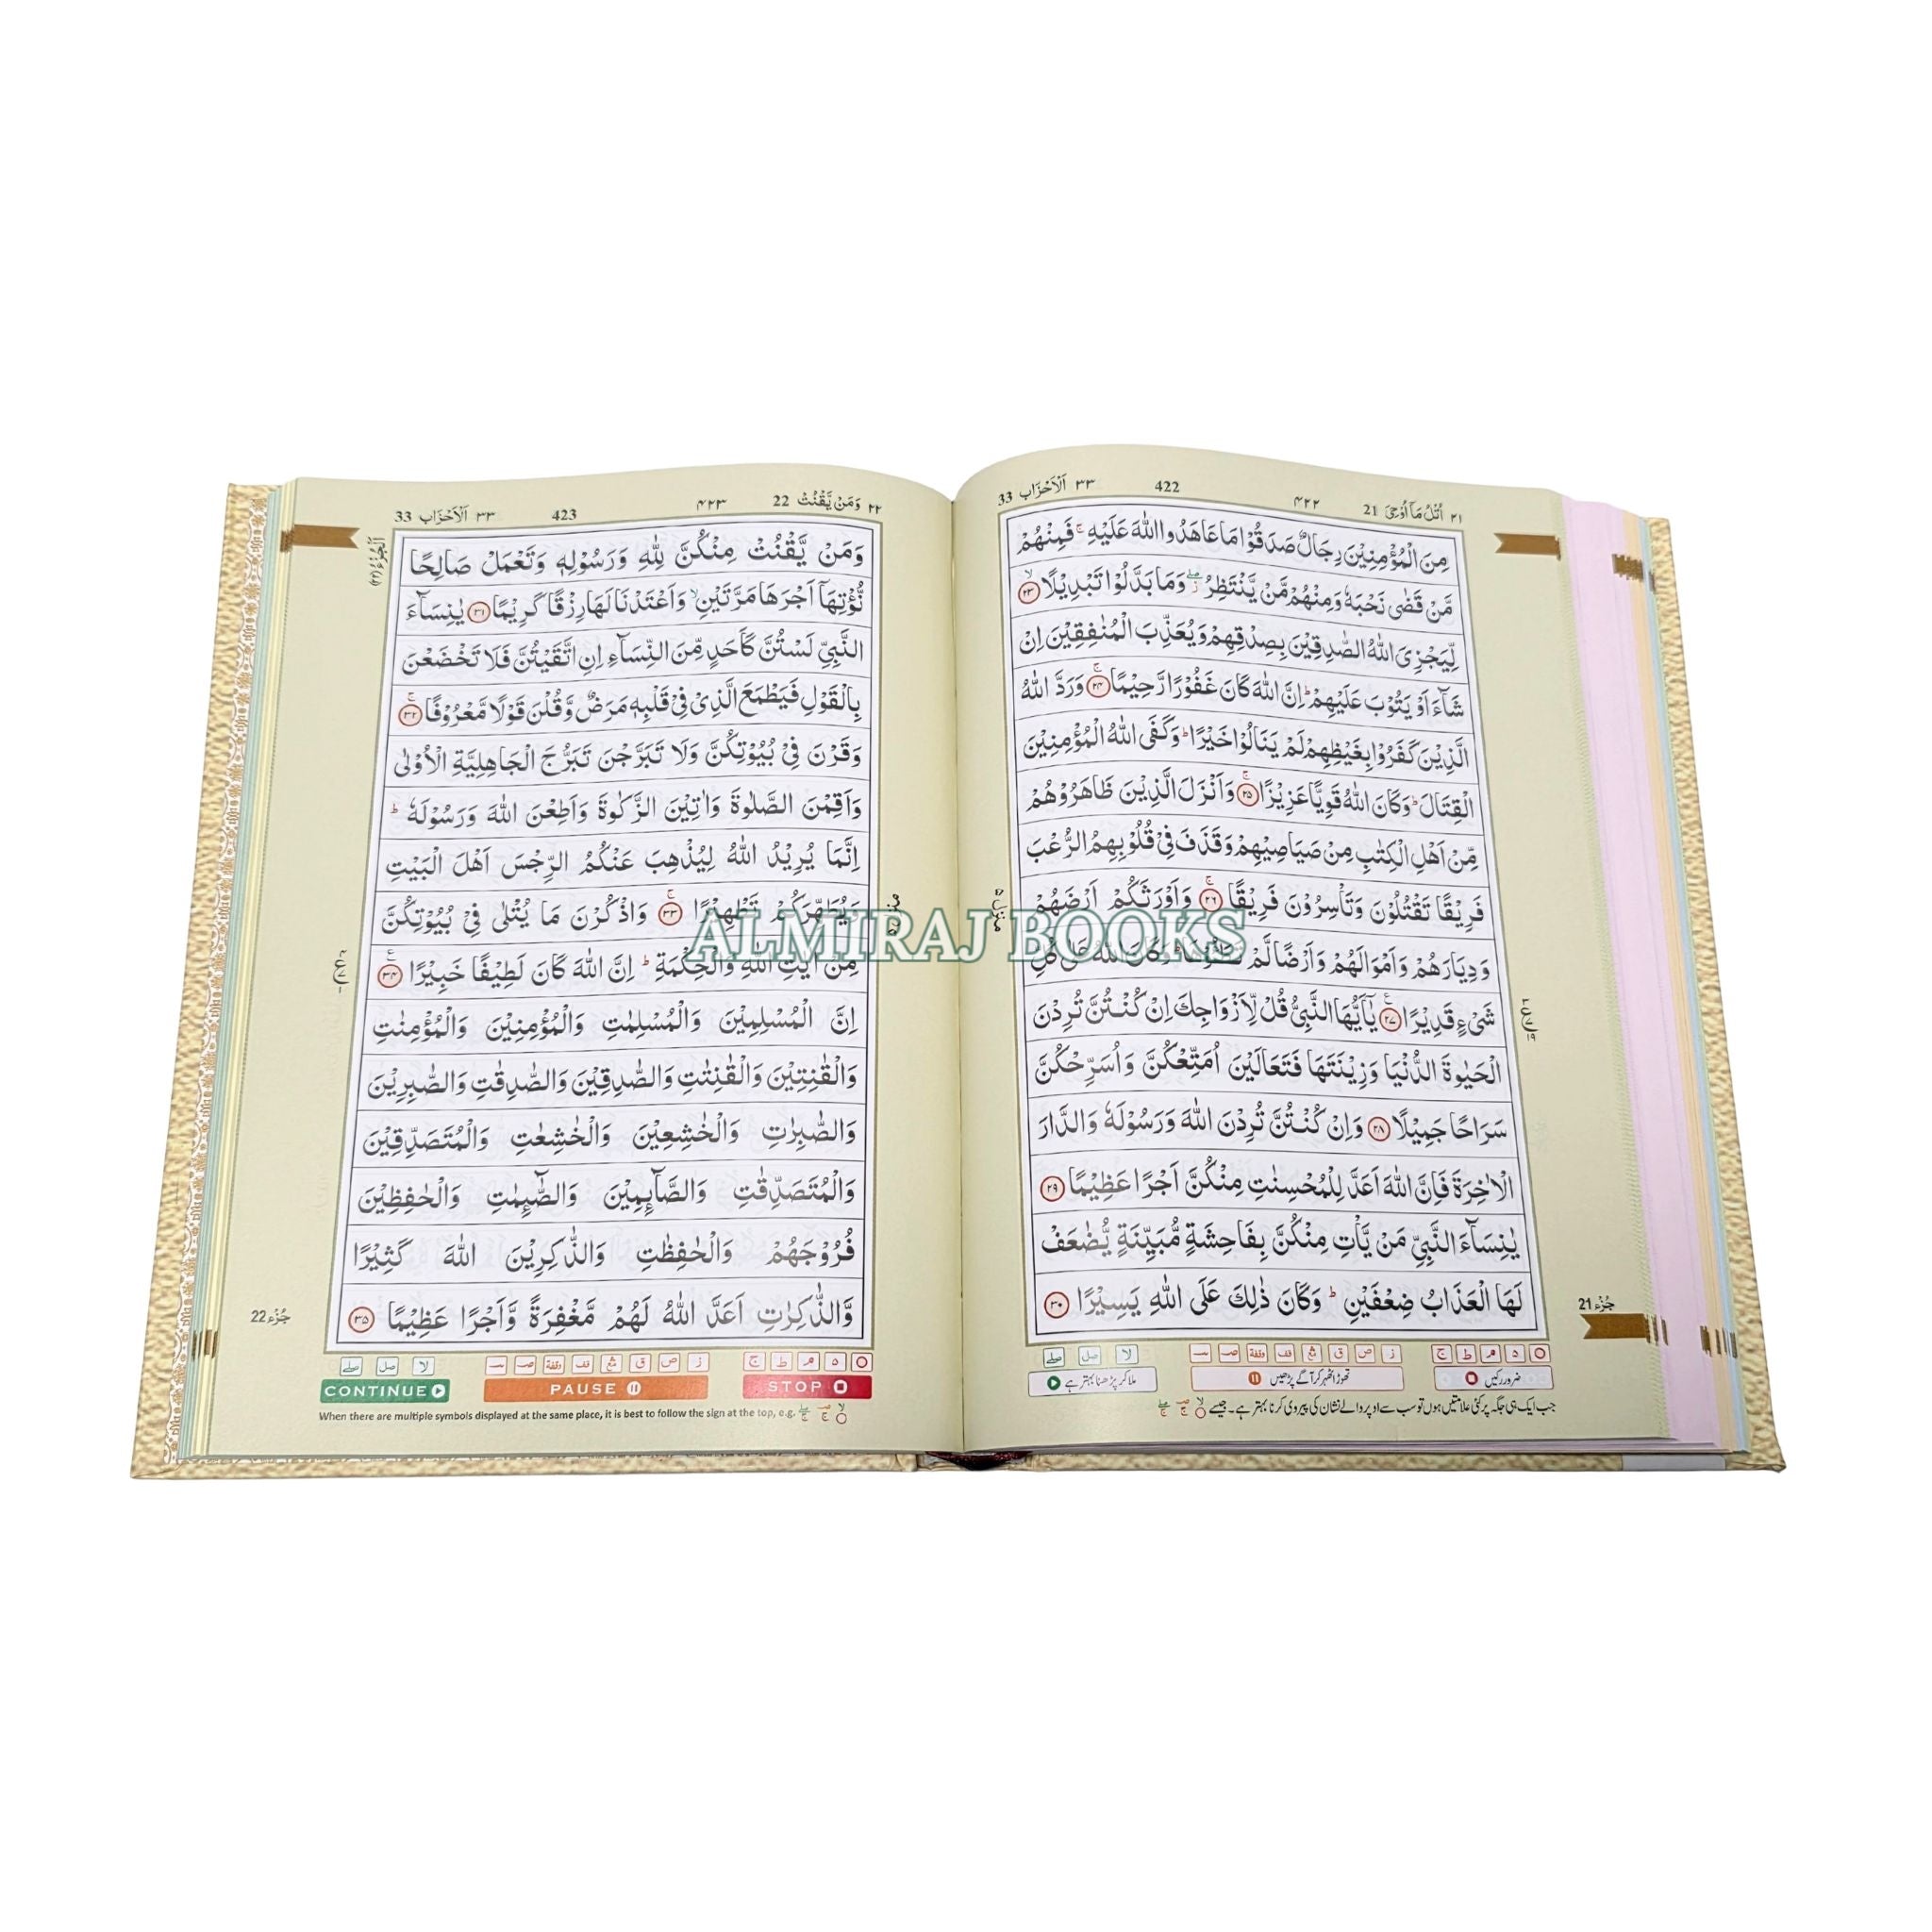 ٢١ اُتْلُ مَآ اُوْحِیَ 21 ٤٢٢ 422 ٣٣ اَلْاَحْزَاب 33
مِنَ الْمُؤْمِنِیْنَ رِجَالٌ صَدَقُوْا مَا عَاهَدُوا اللّٰهَ عَلَیْهِ ۚ فَمِنْهُمْ
مَّنْ قَضٰی نَحْبَهٗ وَمِنْهُمْ مَّنْ یَّنْتَظِرُ ۖ وَمَا بَدَّلُوْا تَبْدِیْلًا ۙ ٢٣
لِّیَجْزِیَ اللّٰهُ الصّٰدِقِیْنَ بِصِدْقِهِمْ وَیُعَذِّبَ الْمُنٰفِقِیْنَ اِنْ
شَآءَ اَوْ یَتُوْبَ عَلَیْهِمْ ؕ اِنَّ اللّٰهَ كَانَ غَفُوْرًا رَّحِیْمًا ۚ ٢٤ وَرَدَّ اللّٰهُ
الَّذِیْنَ كَفَرُوْا بِغَیْظِهِمْ لَمْ یَنَالُوْا خَیْرًا ؕ وَكَفَی اللّٰهُ الْمُؤْمِنِیْنَ
الْقِتَالَ ؕ وَكَانَ اللّٰهُ قَوِیًّا عَزِیْزًا ۚ ٢٥ وَاَنْزَلَ الَّذِیْنَ ظَاهَرُوْهُمْ
مِّنْ اَهْلِ الْكِتٰبِ مِنْ صَیَاصِیْهِمْ وَقَذَفَ فِیْ قُلُوْبِهِمُ الرُّعْبَ
فَرِیْقًا تَقْتُلُوْنَ وَتَاْسِرُوْنَ فَرِیْقًا ۚ ٢٦ وَاَوْرَثَكُمْ اَرْضَهُمْ
وَدِیَارَهُمْ وَاَمْوَالَهُمْ وَاَرْضًا لَّمْ تَطَـُٔوْهَا ؕ وَكَانَ اللّٰهُ عَلٰی كُلِّ
شَیْءٍ قَدِیْرًا ٢٧ یٰۤاَیُّهَا النَّبِیُّ قُلْ لِّاَزْوَاجِكَ اِنْ كُنْتُنَّ تُرِدْنَ
الْحَیٰوةَ الدُّنْیَا وَزِیْنَتَهَا فَتَعَالَیْنَ اُمَتِّعْكُنَّ وَاُسَرِّحْكُنَّ
سَرَاحًا جَمِیْلًا ٢٨ وَاِنْ كُنْتُنَّ تُرِدْنَ اللّٰهَ وَرَسُوْلَهٗ وَالدَّارَ
الْاٰخِرَةَ فَاِنَّ اللّٰهَ اَعَدَّ لِلْمُحْسِنٰتِ مِنْكُنَّ اَجْرًا عَظِیْمًا ٢٩
یٰنِسَآءَ النَّبِیِّ مَنْ یَّاْتِ مِنْكُنَّ بِفَاحِشَةٍ مُّبَیِّنَةٍ یُّضٰعَفْ
لَهَا الْعَذَابُ ضِعْفَیْنِ ؕ وَكَانَ ذٰلِكَ عَلَی اللّٰهِ یَسِیْرًا ٣٠
منزل ٥
جُزْء 21
ضرور رکیں تھوڑا ٹھہر کر آگے پڑھیں ملا کر پڑھنا بہتر ہے
جب ایک ہی جگہ پر کئی علامتیں ہوں تو سب سے اوپر والے نشان کی پیروی کرنا بہتر ہے۔ جیسے
٢٢ وَمَنْ یَّقْنُتْ 22 ٤٢٣ 423 ٣٣ اَلْاَحْزَاب 33
اَلْجُزْءُ (٢٢)
وَمَنْ یَّقْنُتْ مِنْكُنَّ لِلّٰهِ وَرَسُوْلِهٖ وَتَعْمَلْ صَالِحًا
نُّؤْتِهَاۤ اَجْرَهَا مَرَّتَیْنِ ۙ وَاَعْتَدْنَا لَهَا رِزْقًا كَرِیْمًا ٣١ یٰنِسَآءَ
النَّبِیِّ لَسْتُنَّ كَاَحَدٍ مِّنَ النِّسَآءِ اِنِ اتَّقَیْتُنَّ فَلَا تَخْضَعْنَ
بِالْقَوْلِ فَیَطْمَعَ الَّذِیْ فِیْ قَلْبِهٖ مَرَضٌ وَّقُلْنَ قَوْلًا مَّعْرُوْفًا ۚ ٣٢
وَقَرْنَ فِیْ بُیُوْتِكُنَّ وَلَا تَبَرَّجْنَ تَبَرُّجَ الْجَاهِلِیَّةِ الْاُوْلٰی
وَاَقِمْنَ الصَّلٰوةَ وَاٰتِیْنَ الزَّكٰوةَ وَاَطِعْنَ اللّٰهَ وَرَسُوْلَهٗ ؕ
اِنَّمَا یُرِیْدُ اللّٰهُ لِیُذْهِبَ عَنْكُمُ الرِّجْسَ اَهْلَ الْبَیْتِ
وَیُطَهِّرَكُمْ تَطْهِیْرًا ۚ ٣٣ وَاذْكُرْنَ مَا یُتْلٰی فِیْ بُیُوْتِكُنَّ
مِنْ اٰیٰتِ اللّٰهِ وَالْحِكْمَةِ ؕ اِنَّ اللّٰهَ كَانَ لَطِیْفًا خَبِیْرًا ٣٤
اِنَّ الْمُسْلِمِیْنَ وَالْمُسْلِمٰتِ وَالْمُؤْمِنِیْنَ وَالْمُؤْمِنٰتِ
وَالْقٰنِتِیْنَ وَالْقٰنِتٰتِ وَالصّٰدِقِیْنَ وَالصّٰدِقٰتِ وَالصّٰبِرِیْنَ
وَالصّٰبِرٰتِ وَالْخٰشِعِیْنَ وَالْخٰشِعٰتِ وَالْمُتَصَدِّقِیْنَ
وَالْمُتَصَدِّقٰتِ وَالصَّآىِٕمِیْنَ وَالصّٰٓىِٕمٰتِ وَالْحٰفِظِیْنَ
فُرُوْجَهُمْ وَالْحٰفِظٰتِ وَالذّٰكِرِیْنَ اللّٰهَ كَثِیْرًا
وَّالذّٰكِرٰتِ اَعَدَّ اللّٰهُ لَهُمْ مَّغْفِرَةً وَّاَجْرًا عَظِیْمًا ٣٥
جُزْء 22
CONTINUE PAUSE STOP
When there are multiple symbols displayed at the same place, it is best to follow the sign at the top, e.g.
ALMIRAJ BOOKS